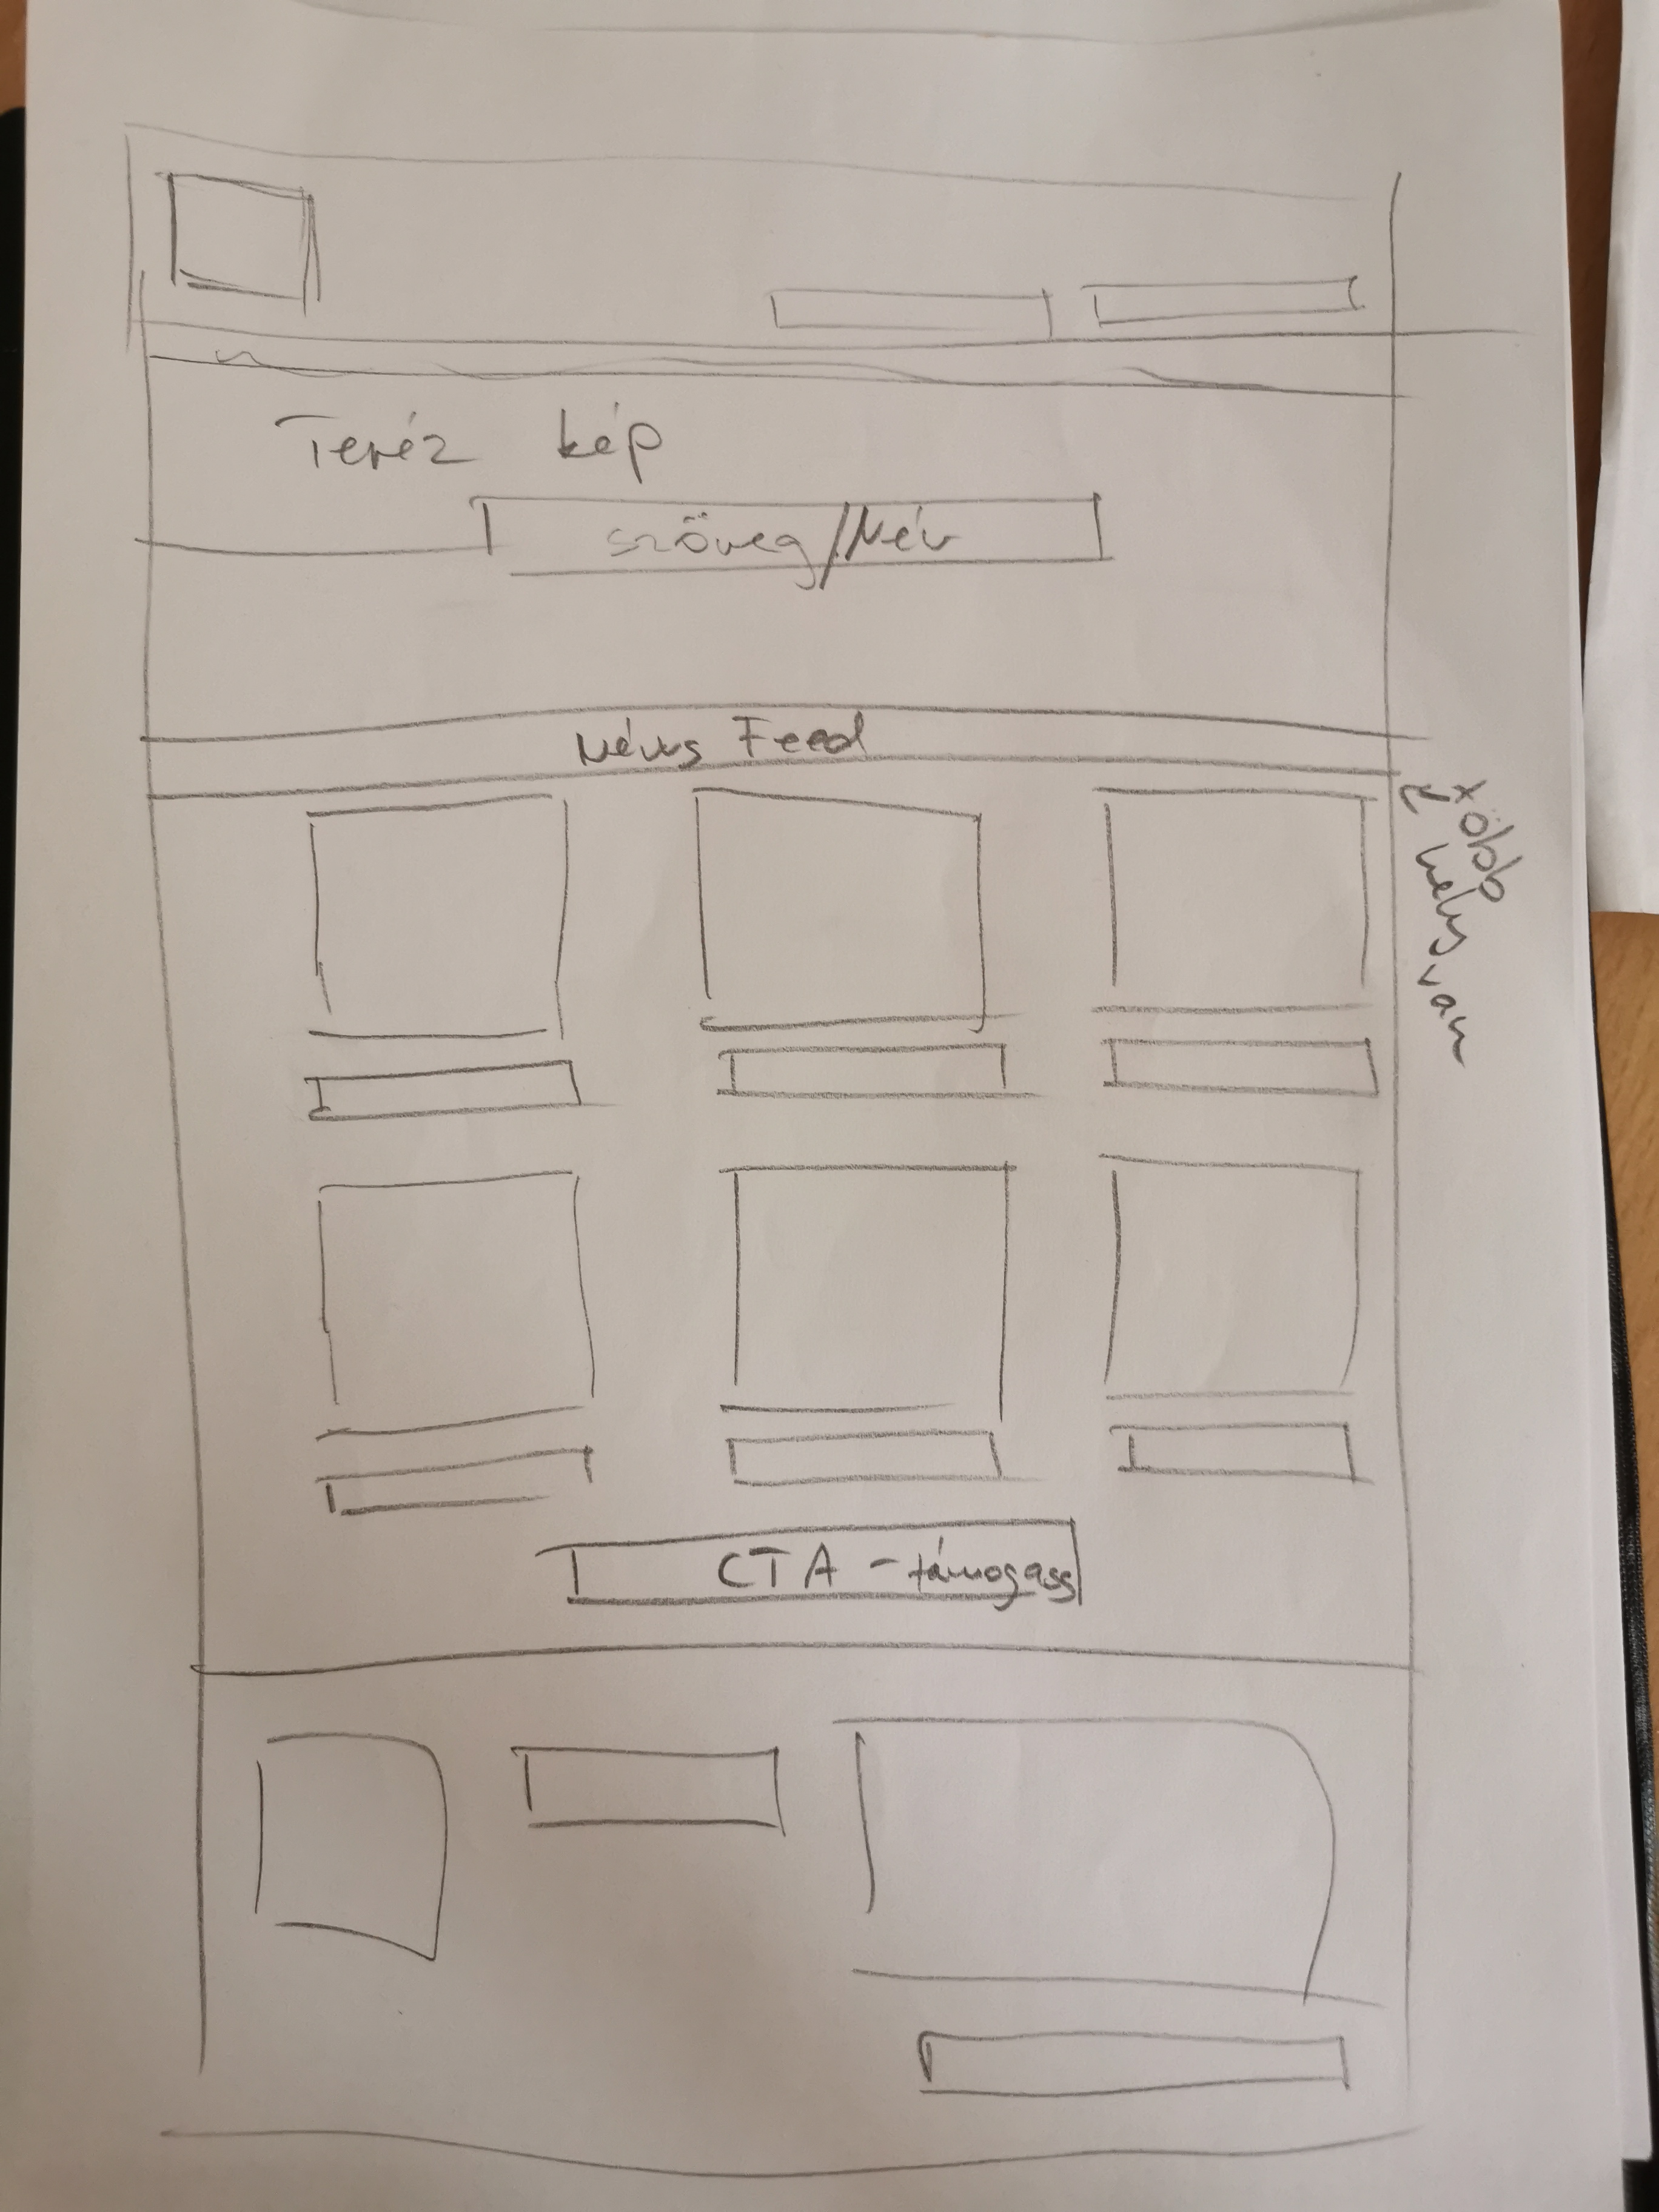 Teréz kép
szöveg/Név
Néws Feed
több
hely van
CTA - támogass